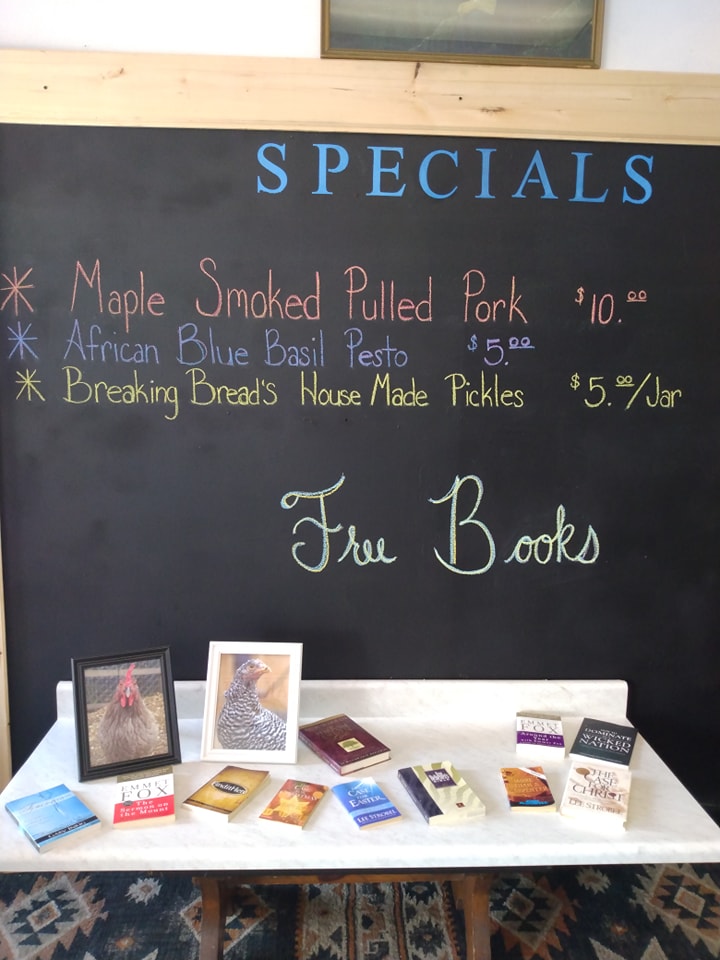 SPECIALS
* Maple Smoked Pulled Pork $10.00
* African Blue Basil Pesto $5.00
* Breaking Bread's House Made Pickles $5.00/Jar
Free Books
EMMET
FOX
Around the
Year
DOMINATE
WICKED
NATION
EMMET
FOX
The
Sermon on
the Mount
THE
CASE
FOR
EASTER
LEE STROBEL
THE CASE
FOR
CHRIST
LEE STROBEL